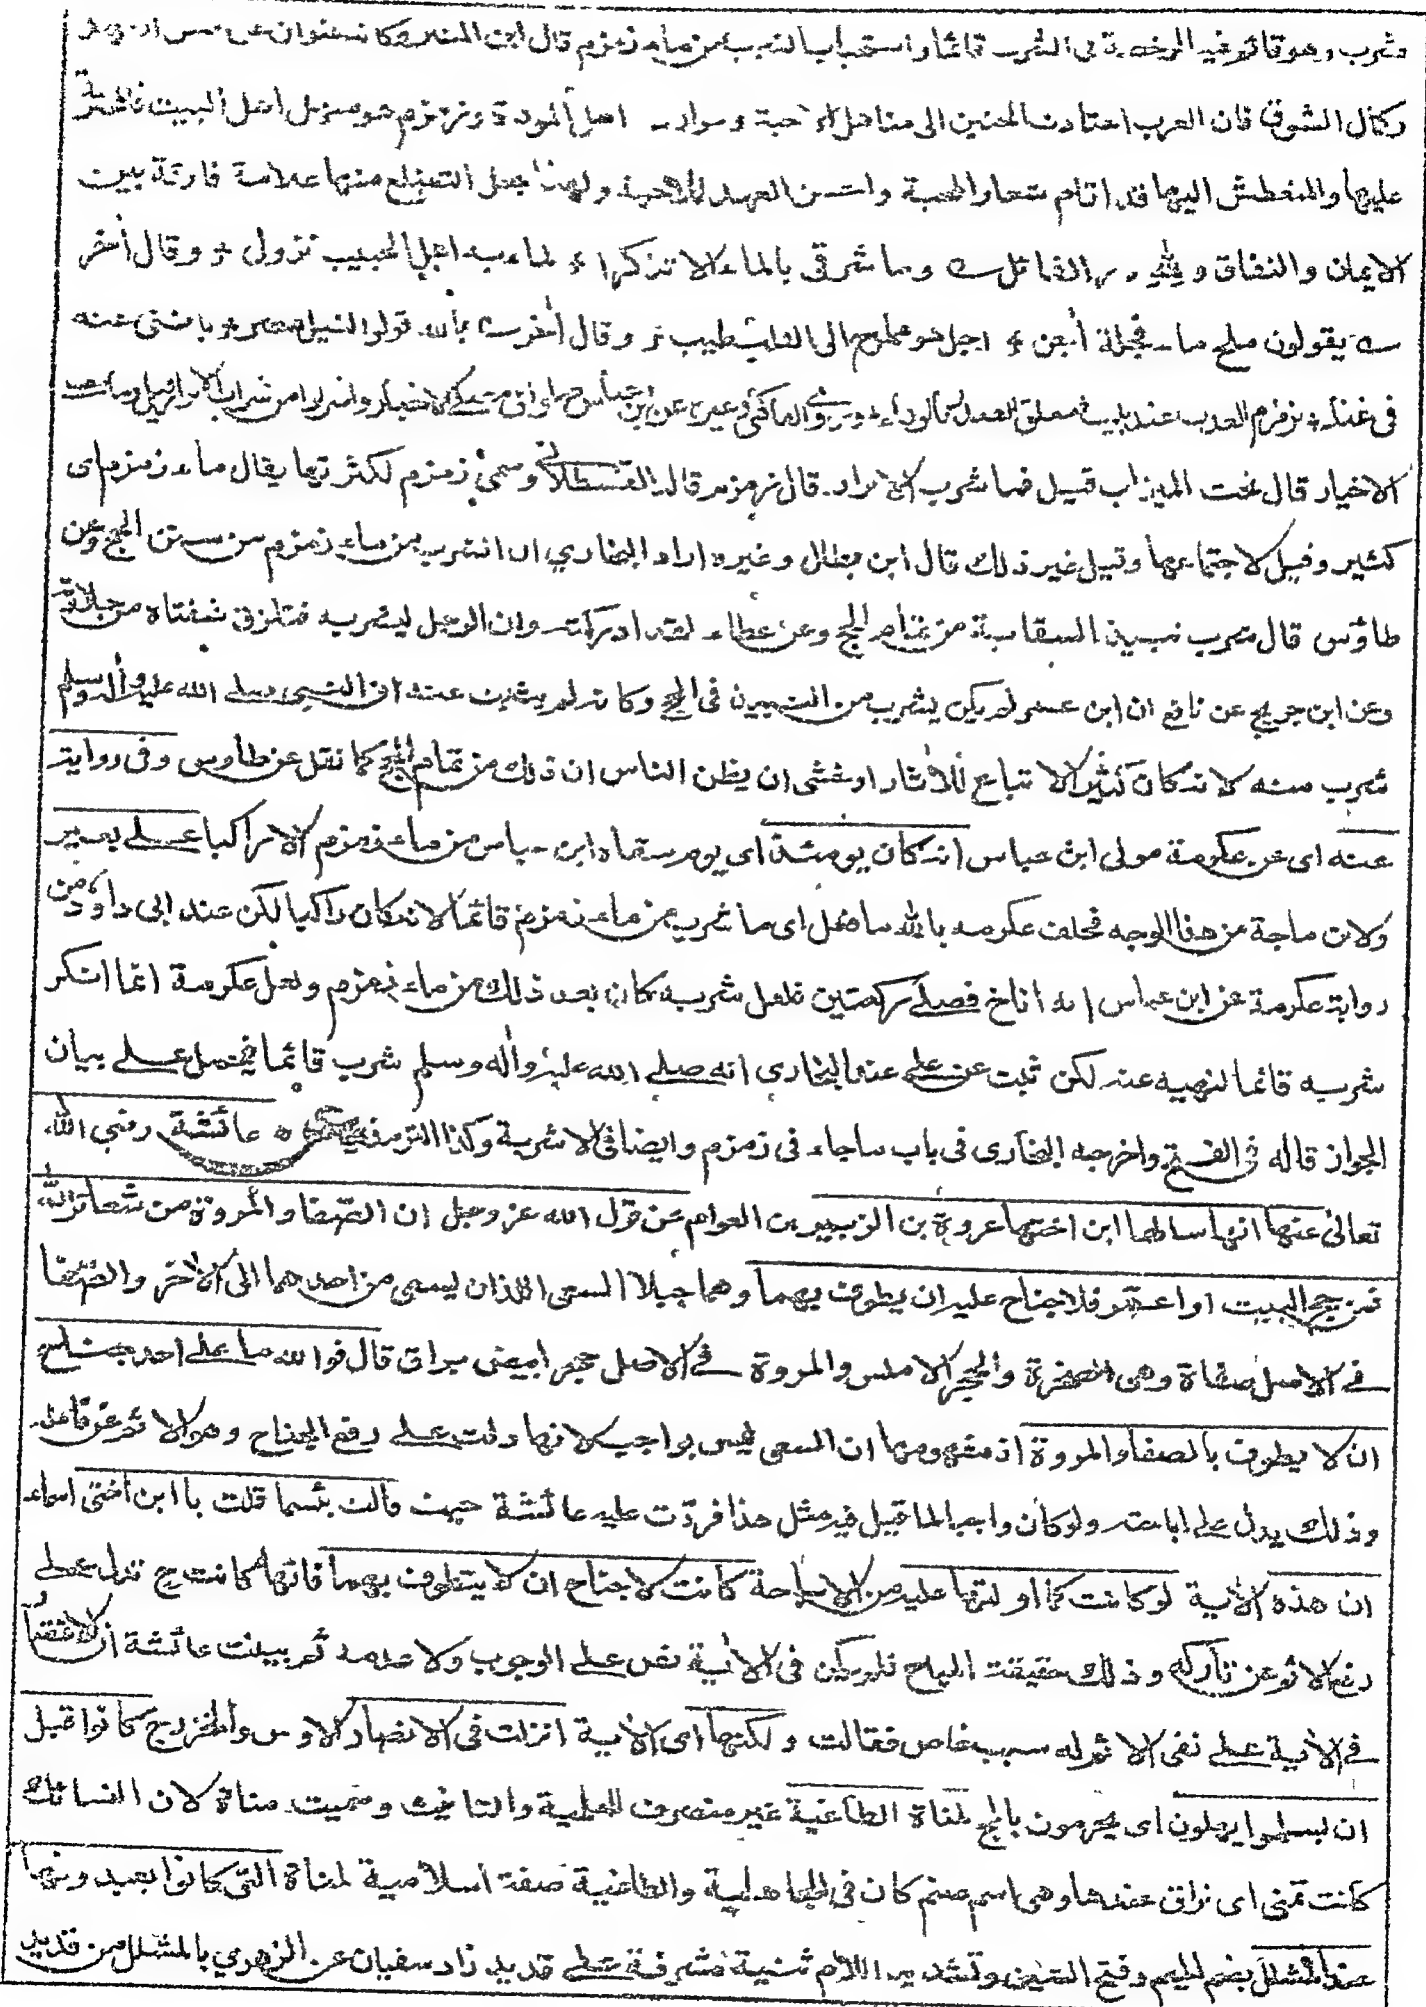 شرب وهو قائم فيه الرخصة في الشرب قائما واستحباب الشرب من ماء زمزم قال ابن المنير وكانه عنوان عن حسن العهد
وكمال الشوق فان العرب اعتادت الحنين الى مناهل الاحبة وموارد اهل المودة وزمزم هو منزل اهل البيت فالمتحرق
عليها والمتعطش اليها قد اقام شعار المحبة واحسن العهد للاحبة ولهذا جعل التضلع منها علامة فارقة بين
الايمان والنفاق ولله در القائل ے وما شرقى بالماء الا تذكرا ۽ لماء به اهل الحبيب نزول ۽ وقال أخر
ے يقولون ملح ماء فجلة أجن ۽ اجل هو مملوح الى القلب طيب ۽ وقال أخر ے بالله قولوا لنيل مصر ۽ باننى عنه
فى غناء ۽ بزمزم العذب عند بيت معلق الستر بالوفاء ۽ وروى الفاكهى وغيره عن ابن عباس صلوا فى مصلى الاخيار واشربوا من شراب الابرار قيل وما مصلى
الاخيار قال تحت الميزاب قيل فما شراب الابرار قال زمزم قال القسطلانى وسمى زمزم لكثرتها يقال ماء زمزم اى
كثير وقيل لاجتماعها وقيل غير ذلك قال ابن بطال وغيره اراد البخاري ان الشرب من ماء زمزم من سنن الحج وعن
طاؤس قال شرب نبيذ السقاية من تمام الحج وعن عطاء لقد ادركته وان الرجل ليشربه فتلزق شفتاه من حلاوته
وعن ابن جريج عن نافع ان ابن عمر لم يكن يشرب من النبيذ فى الحج وكانه لم يثبت عنده ان النبى صلے الله عليه وأله وسلم
شرب منه لانه كان كثير الاتباع للأثار او خشى ان يظن الناس ان ذلك من تمام الحج كما نقل عن طاوس وفى رواية
عنه اى عن عكرمة مولى ابن عباس انه كان يومئذ اى يوم سقاه ابن عباس من ماء زمزم الا راكبا عـلے بعير
ولابن ماجة من هذا الوجه فحلف عكرمه بالله ما فعل اى ما شرب من ماء زمزم قائما لانه كان راكبا لكن عند ابى داؤد من
رواية عكرمة عن ابن عباس انه اناخ فصلے ركعتين فلعل شربه كان بعد ذلك من ماء زمزم ولعل عكرمة انما انكر
شربه قائما لنهيه عنه لكن ثبت عن على عند البخارى انه صلے الله عليه وأله وسلم شرب قائما فيحمل عـلے بيان
الجواز قاله فى الفتح واخرجه البخارى فى باب ماجاء فى زمزم وايضا فى الاشربة وكذا الترمذى عن عائشة رضي الله
تعالى عنها انها سالها ابن اختها عروة بن الزبير بن العوام عن قول الله عز وجل ان الصفا والمروة من شعائر الله
فمن حج البيت او اعتمر فلا جناح عليه ان يطوف بهما وهما جبلا السعى اللذان يسعى من احدهما الى الأخر والصفا
فے الاصل صفاة وهى الصخرة والحجر الاملس والمروة فے الاصل حجر ابيض براق قال فوالله ما على احد جناح
ان لا يطوف بالصفا والمروة اذ مفهومها ان السعى ليس بواجب لانها دلت عـلے رفع الجناح وهو الاثم عن فاعله
وذلك يدل على اباحته ولو كان واجبا لما قيل فيه مثل هذا فردّت عليه عائشة حيث قالت بئسما قلت يا ابن اختى اسماء
ان هذه الأية لو كانت كما اولتها عليه من الاباحة كانت لا جناح ان لا يتطوف بهما فانها كانت ح تدل على
رفع الاثم عن تاركه وذلك حقيقة المباح فلم يكن فى الأية نص عـلے الوجوب ولا عدمه ثم بينت عائشة ان الاقتصار
فے الأية عـلے نفى الاثم له سبب خاص فقالت ولكنها اى الأية انزلت فى الانصار الاوس والخزرج كانوا قبل
ان يسلموا يهلون اى يحرمون بالحج لمناة الطاغية غير منصرف للعلمية والتانيث وسميت مناة لان النسائك
كانت تمنى اى تراق عندها وهى اسم صنم كان فى الجاهلية والطاغية صفة اسلامية لمناة التى كانوا يعبدونها
عند المشلل بضم الميم وفتح الشين وتشديد اللام ثنية مشرفة على قديد زاد سفيان عن الزهري بالمشلل من قديد